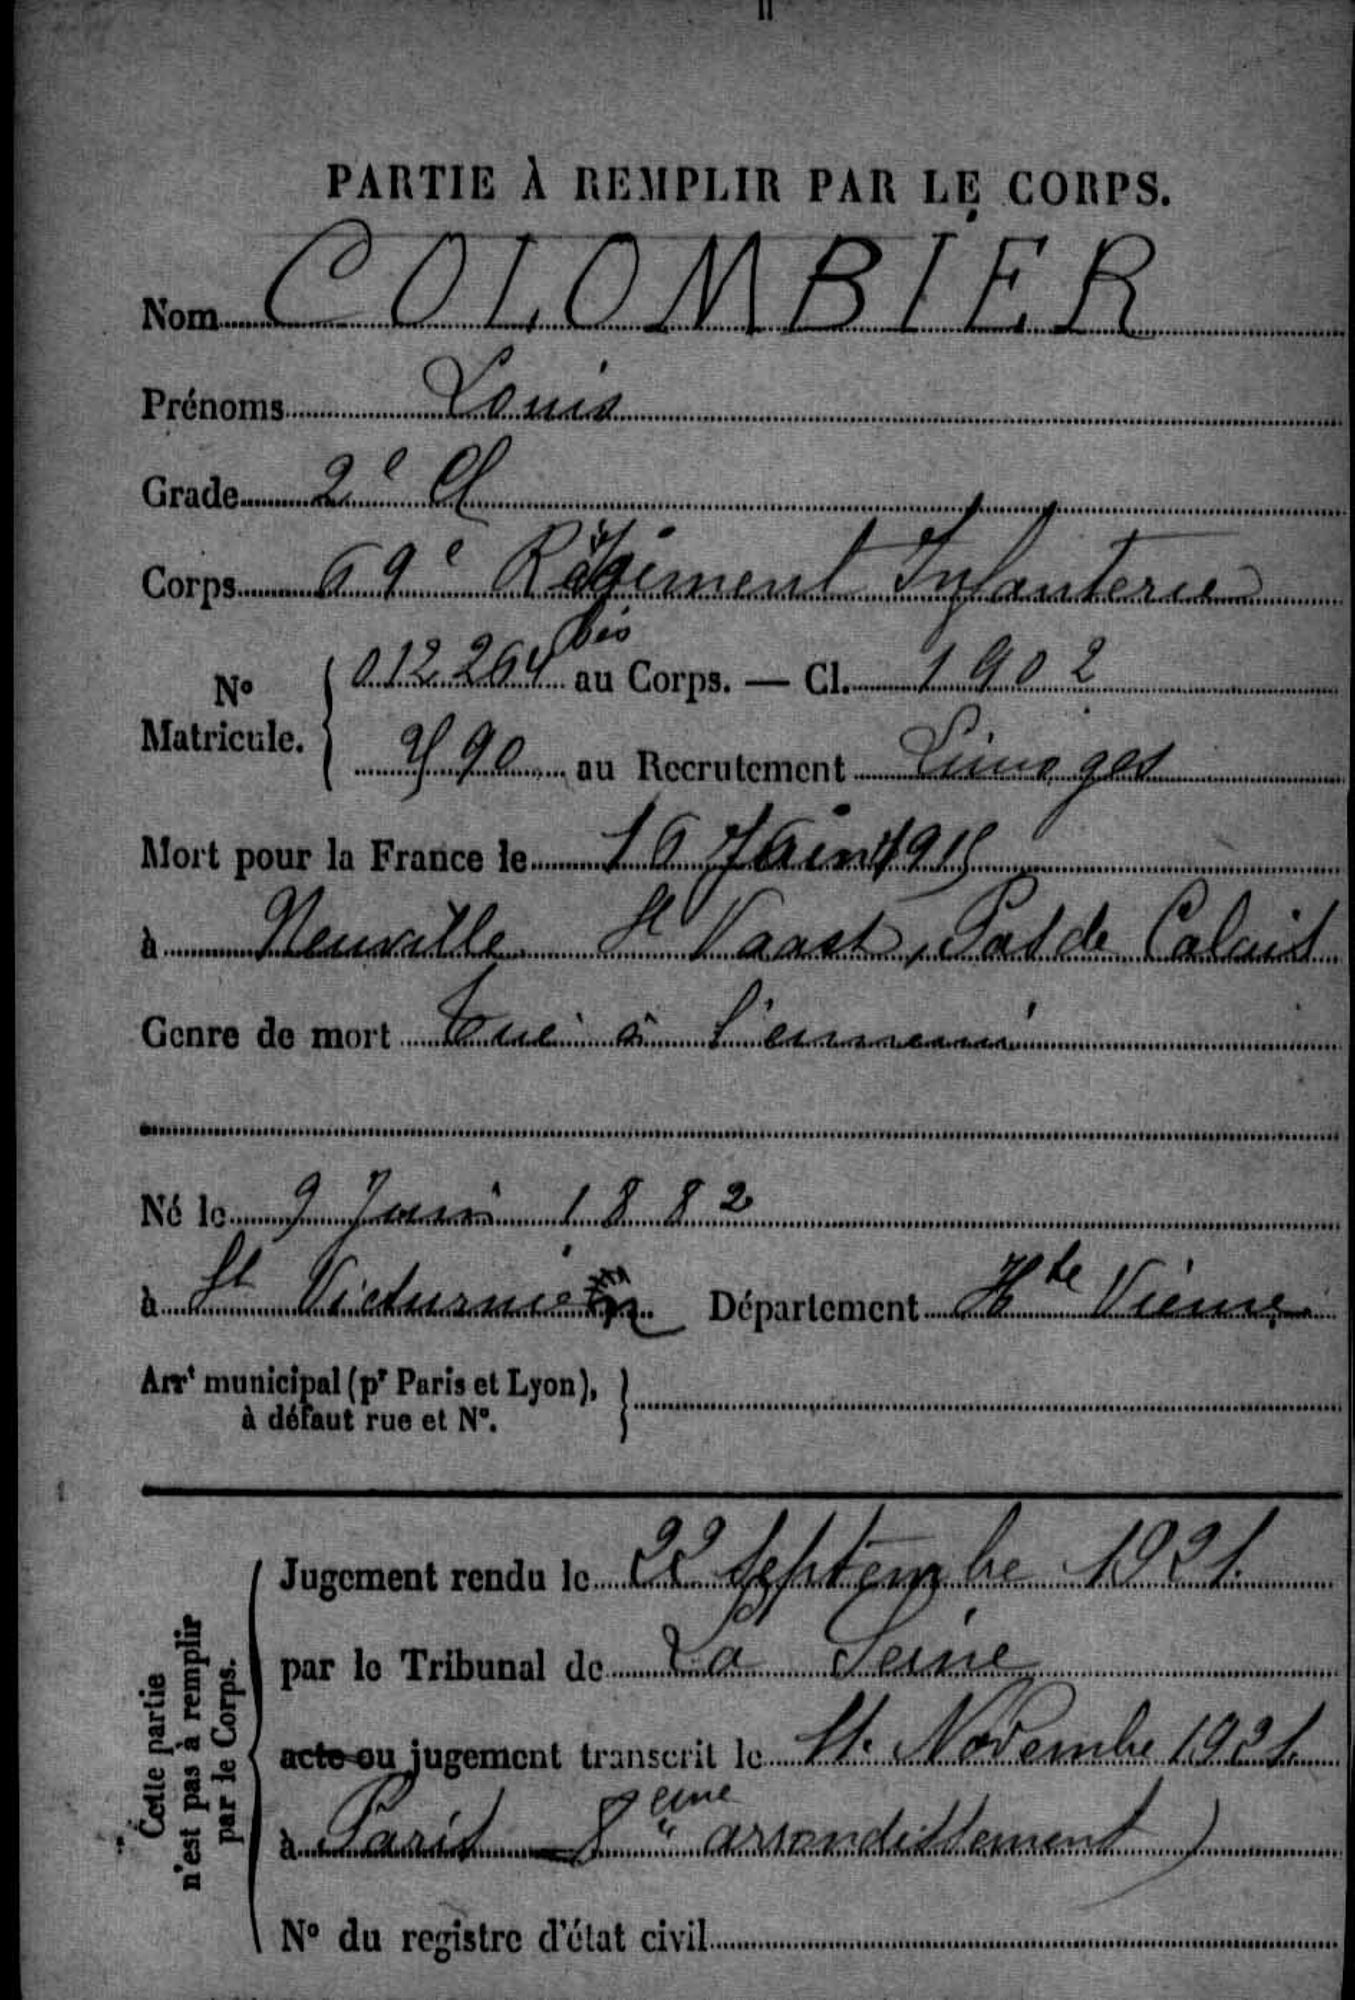 PARTIE À REMPLIR PAR LE CORPS.
Nom COLOMBIER
Prénoms Louis
Grade 2e Cl
Corps 69e Régiment Infanterie
No Matricule. 012264 bis au Corps. — Cl. 1902
490 au Recrutement Limoges
Mort pour la France le 16 Juin 1915
à Neuville St Vaast, Pas de Calais
Genre de mort Tué à l'ennemi
Né le 9 Juin 1882
à St Victurnien Département Hte Vienne
Arrt municipal (pr Paris et Lyon),
à défaut rue et No.
Cette partie
n'est pas à remplir
par le Corps.
Jugement rendu le 22 Septembre 1921.
par le Tribunal de La Seine
acte ou jugement transcrit le 11. Novembre 1921.
à Paris — 8eme arrondissement)
No du registre d'état civil